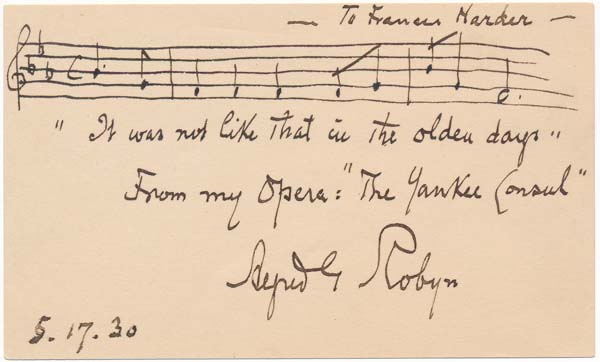 — To Frances Harder —
" It was not like that in the olden days "
From my Opera: "The Yankee Consul"
Alfred G Robyn
5.17.30